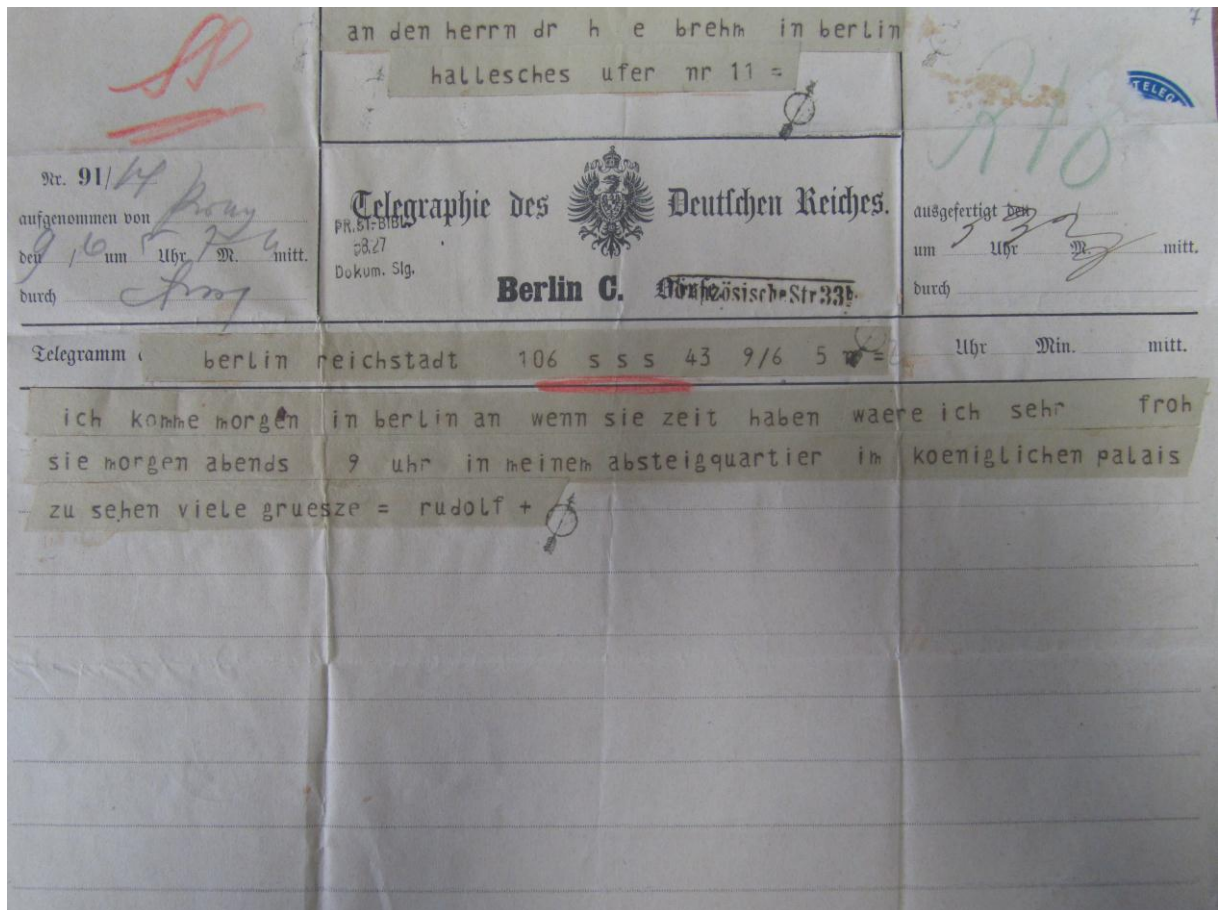 7
an den herrn dr h e brehm in berlin
hallesches ufer nr 11 =
SS
TELEG
R 10
Nr. 91/14
aufgenommen von
den 9/6 um 5 Uhr 7 M. mitt.
durch
Telegraphie des Deutschen Reiches.
PR.ST-BIBL.
08.27
Dokum. Slg.
Berlin C. Französische Str 33b.
ausgefertigt den
um 5 Uhr M. mitt.
durch
Telegramm berlin reichstadt 106 s s s 43 9/6 5 = Uhr Min. mitt.
ich komme morgen in berlin an wenn sie zeit haben waere ich sehr froh
sie morgen abends 9 uhr in meinem absteigquartier im koeniglichen palais
zu sehen viele gruesze = rudolf +